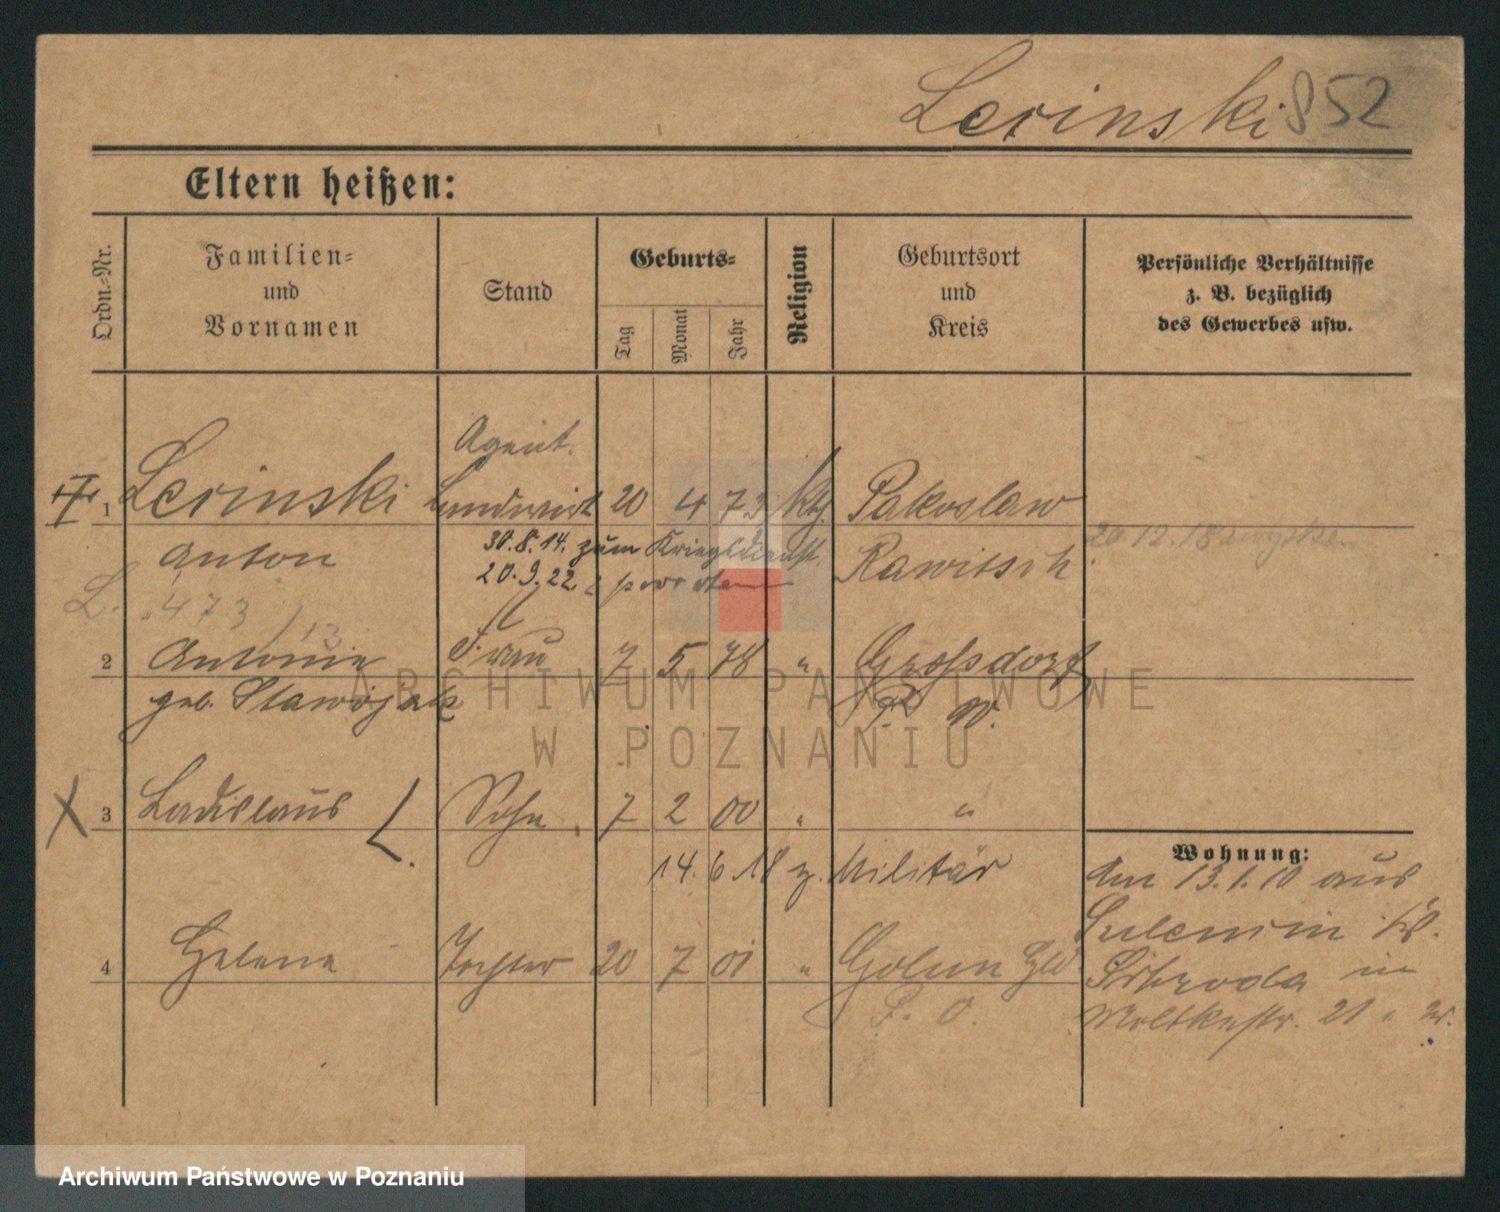 Lerinski 852
Eltern heißen:
Ordn.-Nr.
Familien-
und
Vornamen
Stand
Geburts-
Tag
Monat
Jahr
Religion
Geburtsort
und
Kreis
Persönliche Verhältnisse
z. B. bezüglich
des Gewerbes usw.
Agent.
1 Lerinski Landwirt 20 4 73 kth. Pakoslaw
Anton 30.8.14. zum Kriegsdienst. Rawitsch 20.12.18
20.9.22
L. 473/13
2 Antonie Frau 7 5 78 " Großdorf
geb. P. W.
3 Ladislaus Sohn 7 2 00 " "
14.6.18 z. Militär
Wohnung:
den 13.1.10 aus
4 Helene Tochter 20 7 01 "
P. O.
in
Moltkestr. 21
ARCHIWUM PAŃSTWOWE
W POZNANIU
Archiwum Państwowe w Poznaniu